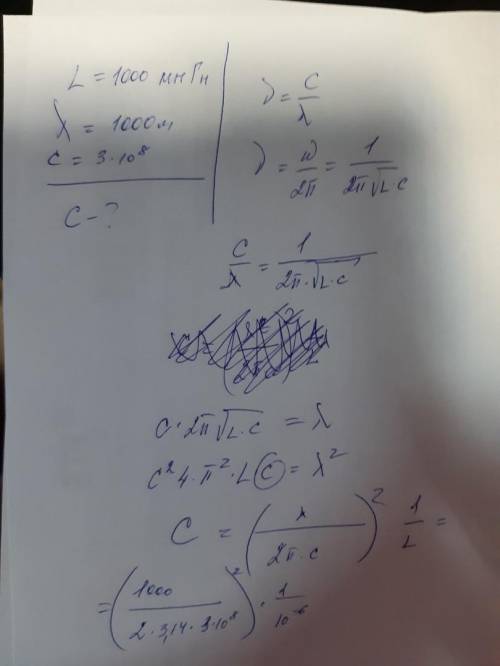 L = 1000 мкГн
λ = 1000м
c = 3·10⁸
C - ?
ν = c/λ
ν = ω/2π = 1/2π√L·C
c/λ = 1/2π·√L·C
c·2π√L·C = λ
c²4·π²·L C = λ²
C = (λ/2π·c)² 1/L =
= (1000/2·3,14·3·10⁸)² · 1/10⁻⁶